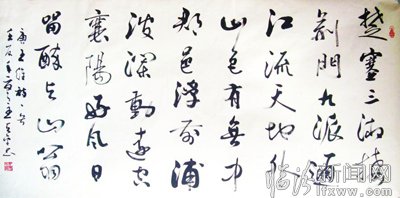 楚塞三湘接
荊門九派通
江流天地外
山色有無中
郡邑浮前浦
波瀾動遠空
襄陽好風日
留醉与山翁
临汾新闻网
lfxww.com